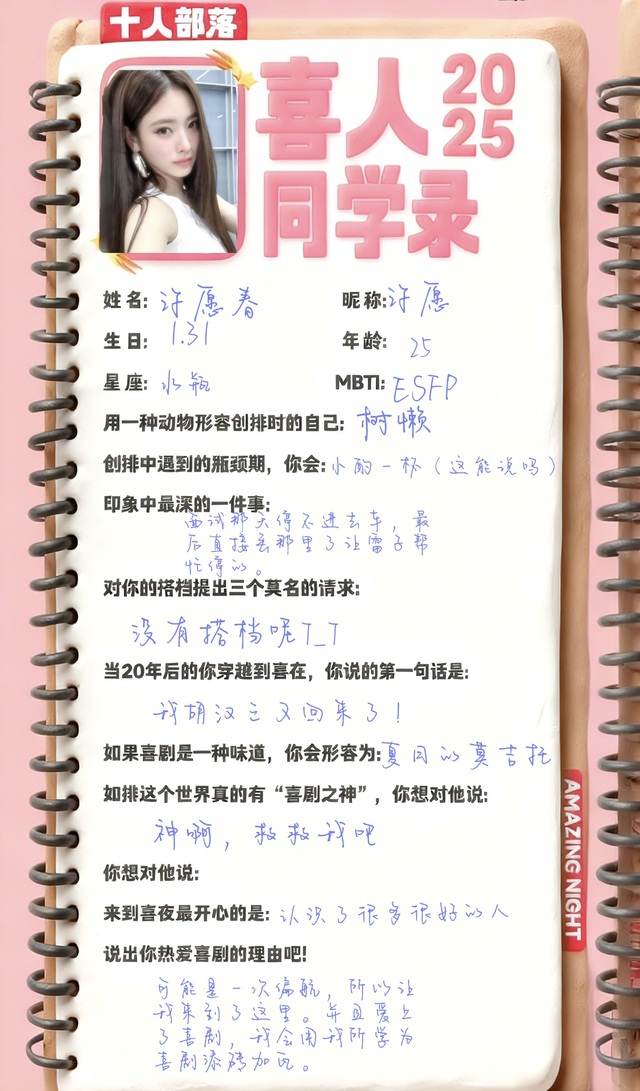 十人部落
喜人 2025
同学录
姓名: 许愿春 昵称: 许愿
生日: 1.31 年龄: 25
星座: 水瓶 MBTI: ESFP
用一种动物形容创排时的自己: 树懒
创排中遇到的瓶颈期，你会: 小酌一杯（这能说吗）
印象中最深的一件事:
面试那天停不进去车，最
后直接丢那里了让雷子帮
忙停的。
对你的搭档提出三个莫名的请求:
没有搭档呢T_T
当20年后的你穿越到喜在，你说的第一句话是:
我胡汉三又回来了！
如果喜剧是一种味道，你会形容为: 夏日的莫吉托
如排这个世界真的有“喜剧之神”，你想对他说:
神啊，救救我吧
你想对他说:
来到喜夜最开心的是: 认识了很多很好的人
说出你热爱喜剧的理由吧!
可能是一次偏航，所以让
我来到了这里。并且爱上
了喜剧，我会用我所学为
喜剧添砖加瓦。
AMAZING NIGHT